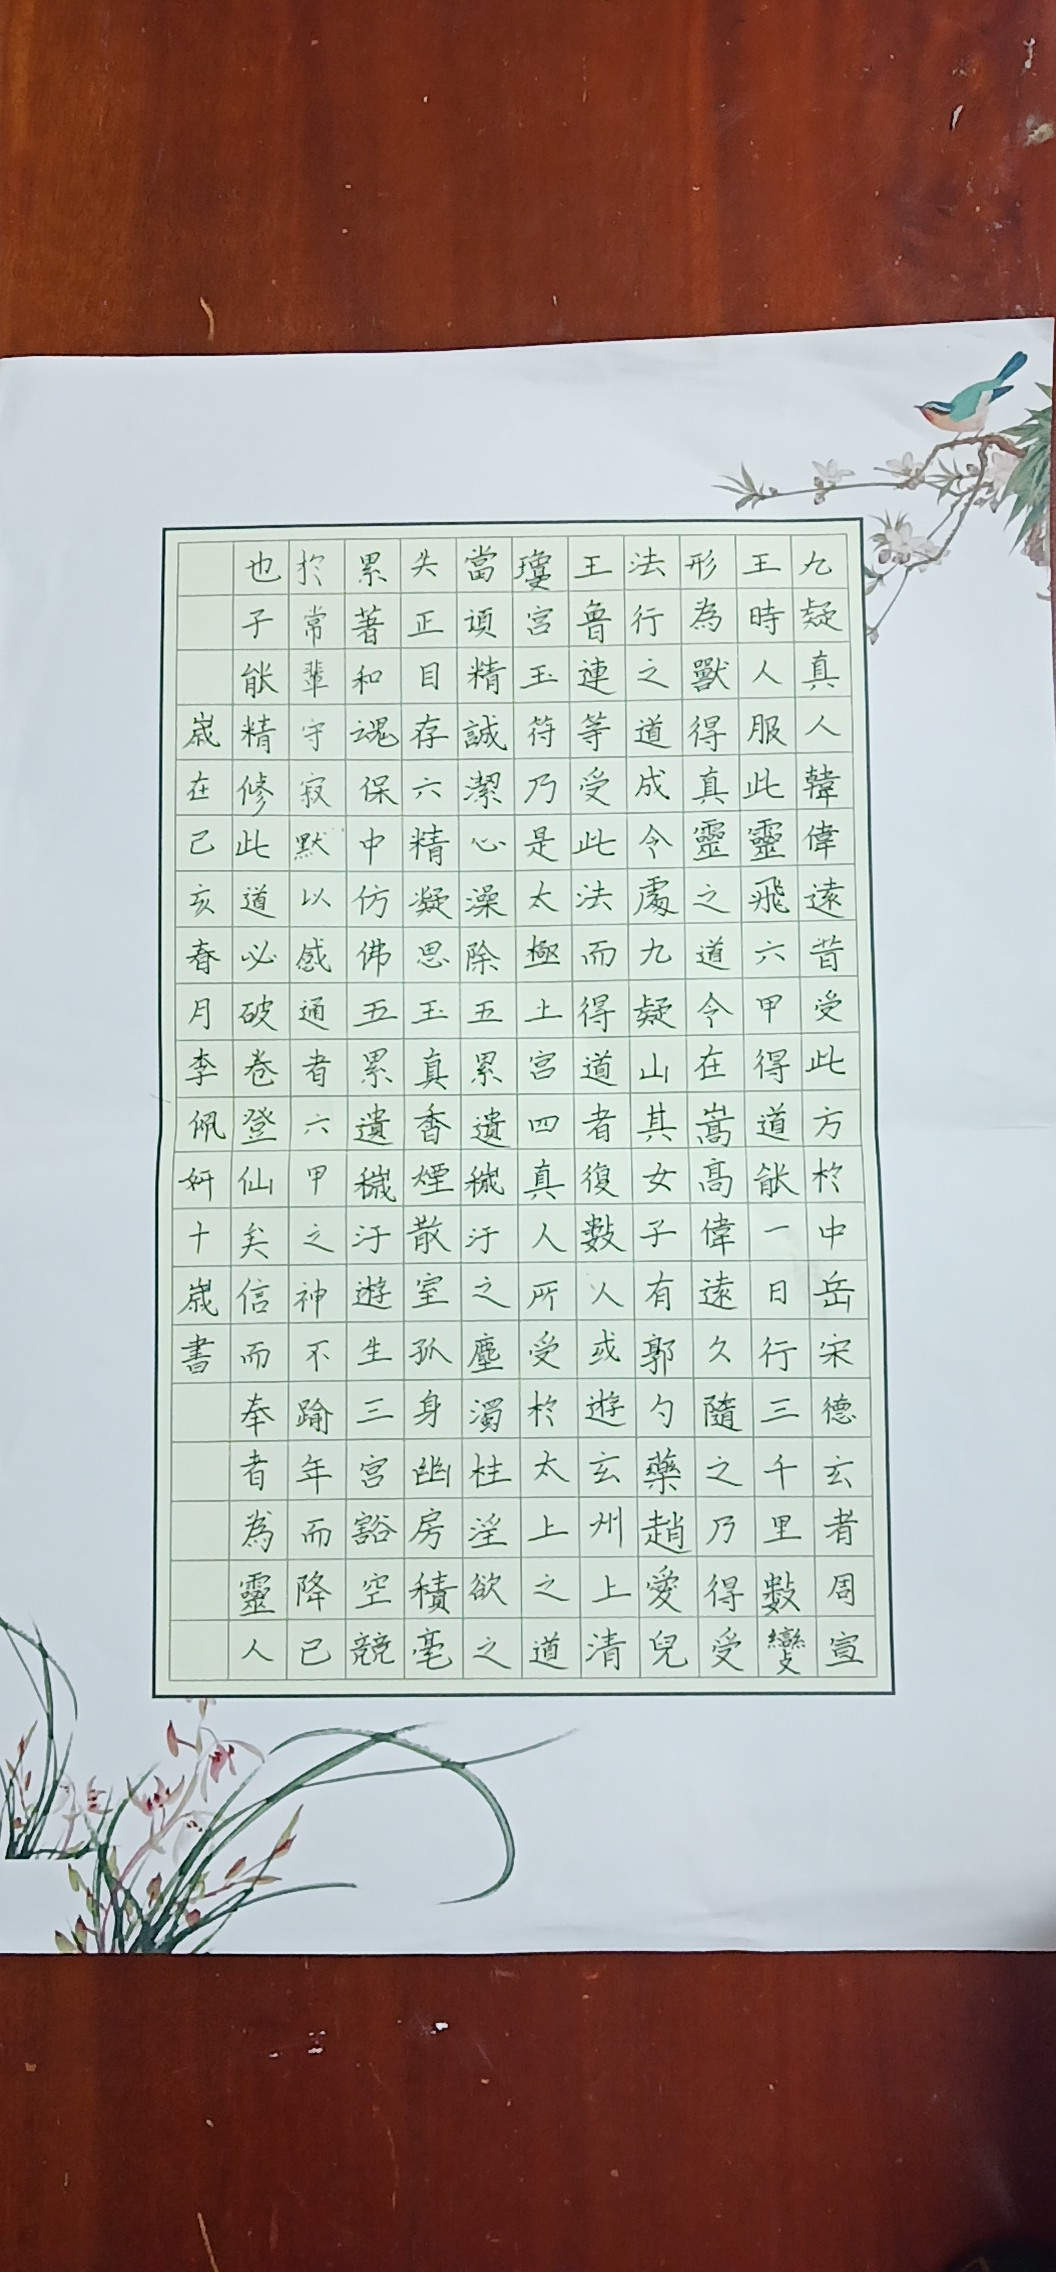 九疑真人韓偉遠昔受此方於中岳宋德玄者周宣
王時人服此靈飛六甲得道能一日行三千里數變
形為獸得真靈之道令在嵩高偉遠久隨之乃得受
法行之道成令處九疑山其女子有郭勺藥趙愛兒
王魯連等受此法而得道者復數人或遊玄州上清
瓊宮玉符乃是太極上宮四真人所受於太上之道
當須精誠潔心澡除五累遺穢汙之塵濁杜淫欲之
失正目存六精凝思玉真香煙散室孤身幽房積毫
累著和魂保中仿佛五累遺穢汙遊生三宮豁空競
於常輩守寂默以感通者六甲之神不踰年而降已
也子能精修此道必破卷登仙矣信而奉者為靈人
嵗在己亥春月李佩妍十嵗書